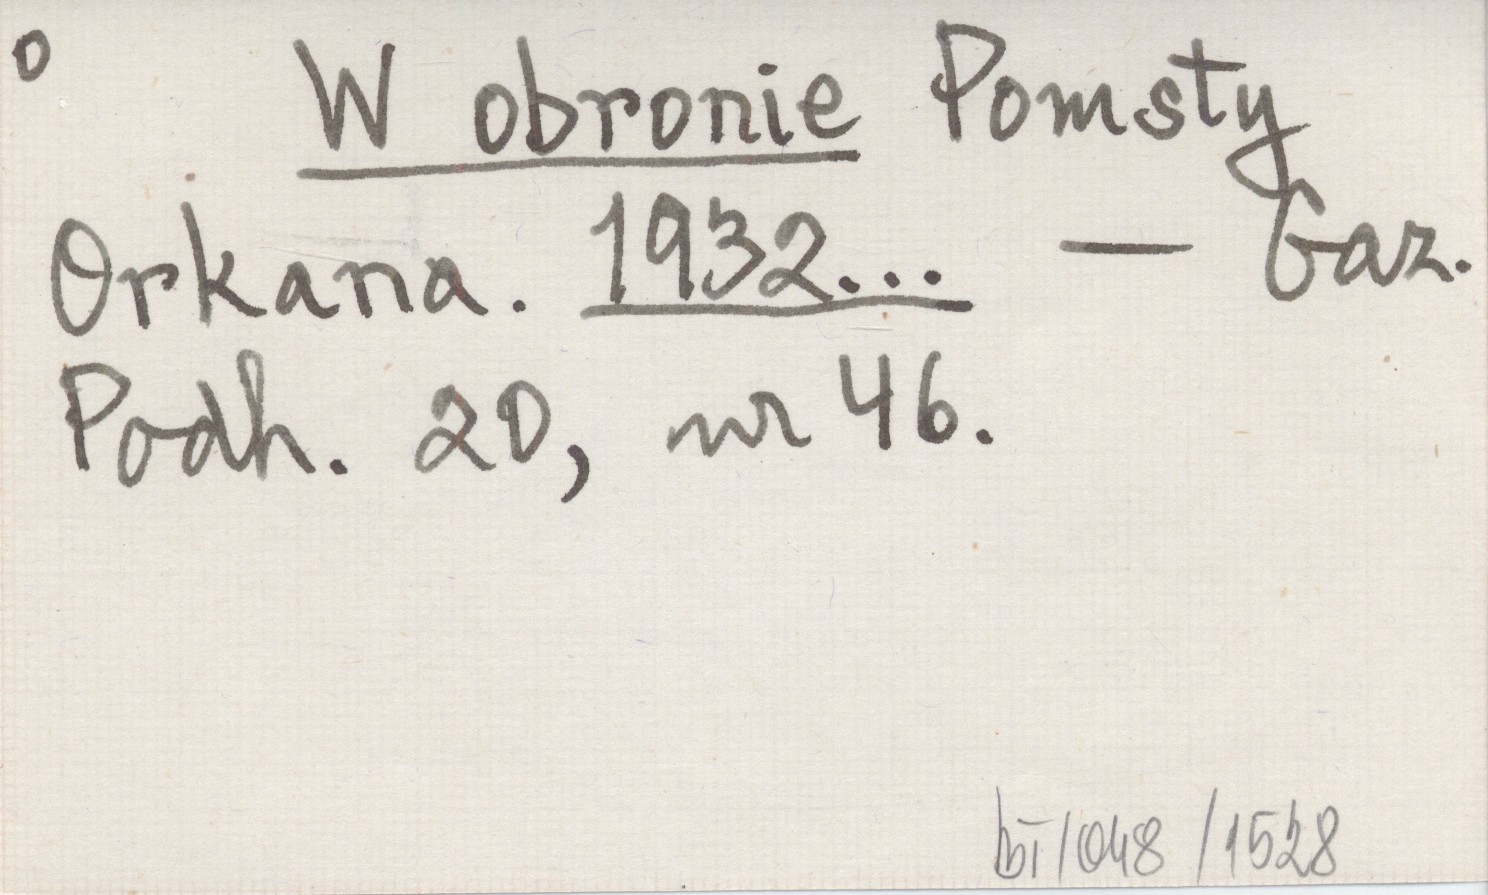 o
W obronie Pomsty
Orkana. 1932... — Gaz.
Podh. 20, nr 46.
bī/048/1528